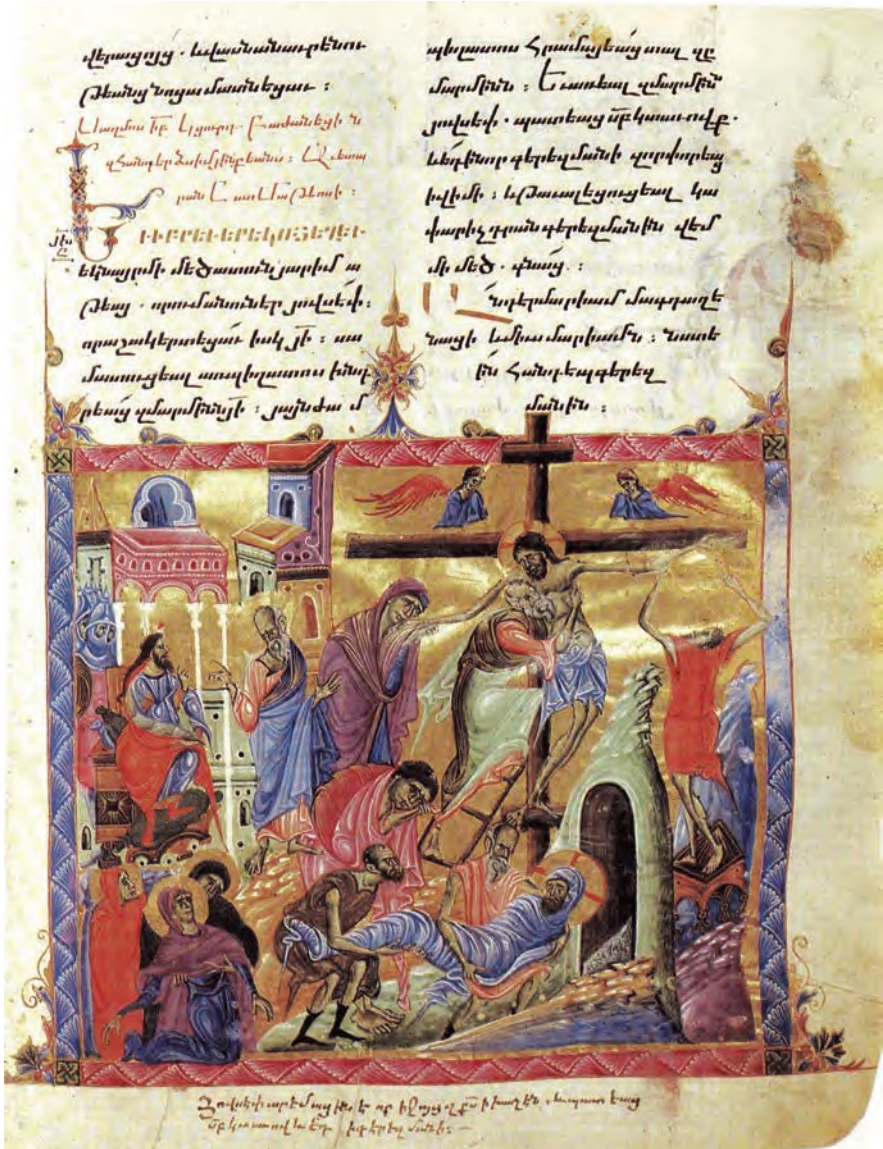 վերացոյց. և վասն անաւրէնու
թեանց նոցա մատնեցաւ :
Սաղմոս Կցուրդ. Բաժանեցին
զհանդերձս իմ Աւետա
րան Ըստ Մաթէոսի :
ԻԲՐԵՒ ԵՐԵԿՈՅ ԵՂԵՒ
եկն այր մի մեծատուն յարիմա
թեայ. որում անուն էր յովսէփ.
որ աշակերտեցաւ իսկ յի : սա
մատուցեալ առ պիղատոս խնդ
րեաց զմարմինն յի : յայնժամ
պիղատոս հրամայեաց տալ զը
մարմինն : Եւ առեալ զմարմինն
յովսէփ. պատեաց սբ կտաւովք.
և եդ ի նոր գերեզմանի զոր փորեաց
ի վիմի : և թաւալեցուցեալ կա
փարիչ դրան գերեզմանին վէմ
մի մեծ. գնաց :
Անդ էր մարիամ մագդաղե
նացի և միւս մարիամն : նստէ
ին հանդէպ գերեզ
մանին :
Յովսէփ արեմացին է որ իջոյց զքս ի խաչէն. և պատեաց
սբ կտաւով և եդ ի գերեզմանի :